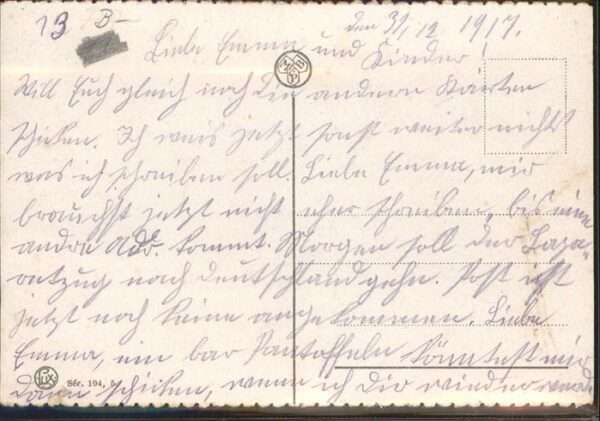 13 B-
den 31/12 1917.
Liebe Emma und Kinder!
Will Euch gleich noch die andern Karten
schicken. Ich weis jetzt sonst weiter nichts
was ich schreiben soll. Liebe Emma, mir
brauchst jetzt nicht eher schreiben, bis eine
andre Adr. kommt. Morgen soll der Laza-
rettzug nach Deutschland gehn. Post ist
jetzt noch keine angekommen. Liebe
Emma, ein bar Pantoffeln könntest mir
dann schicken, wenn ich Dir wieder
Sér. 194,